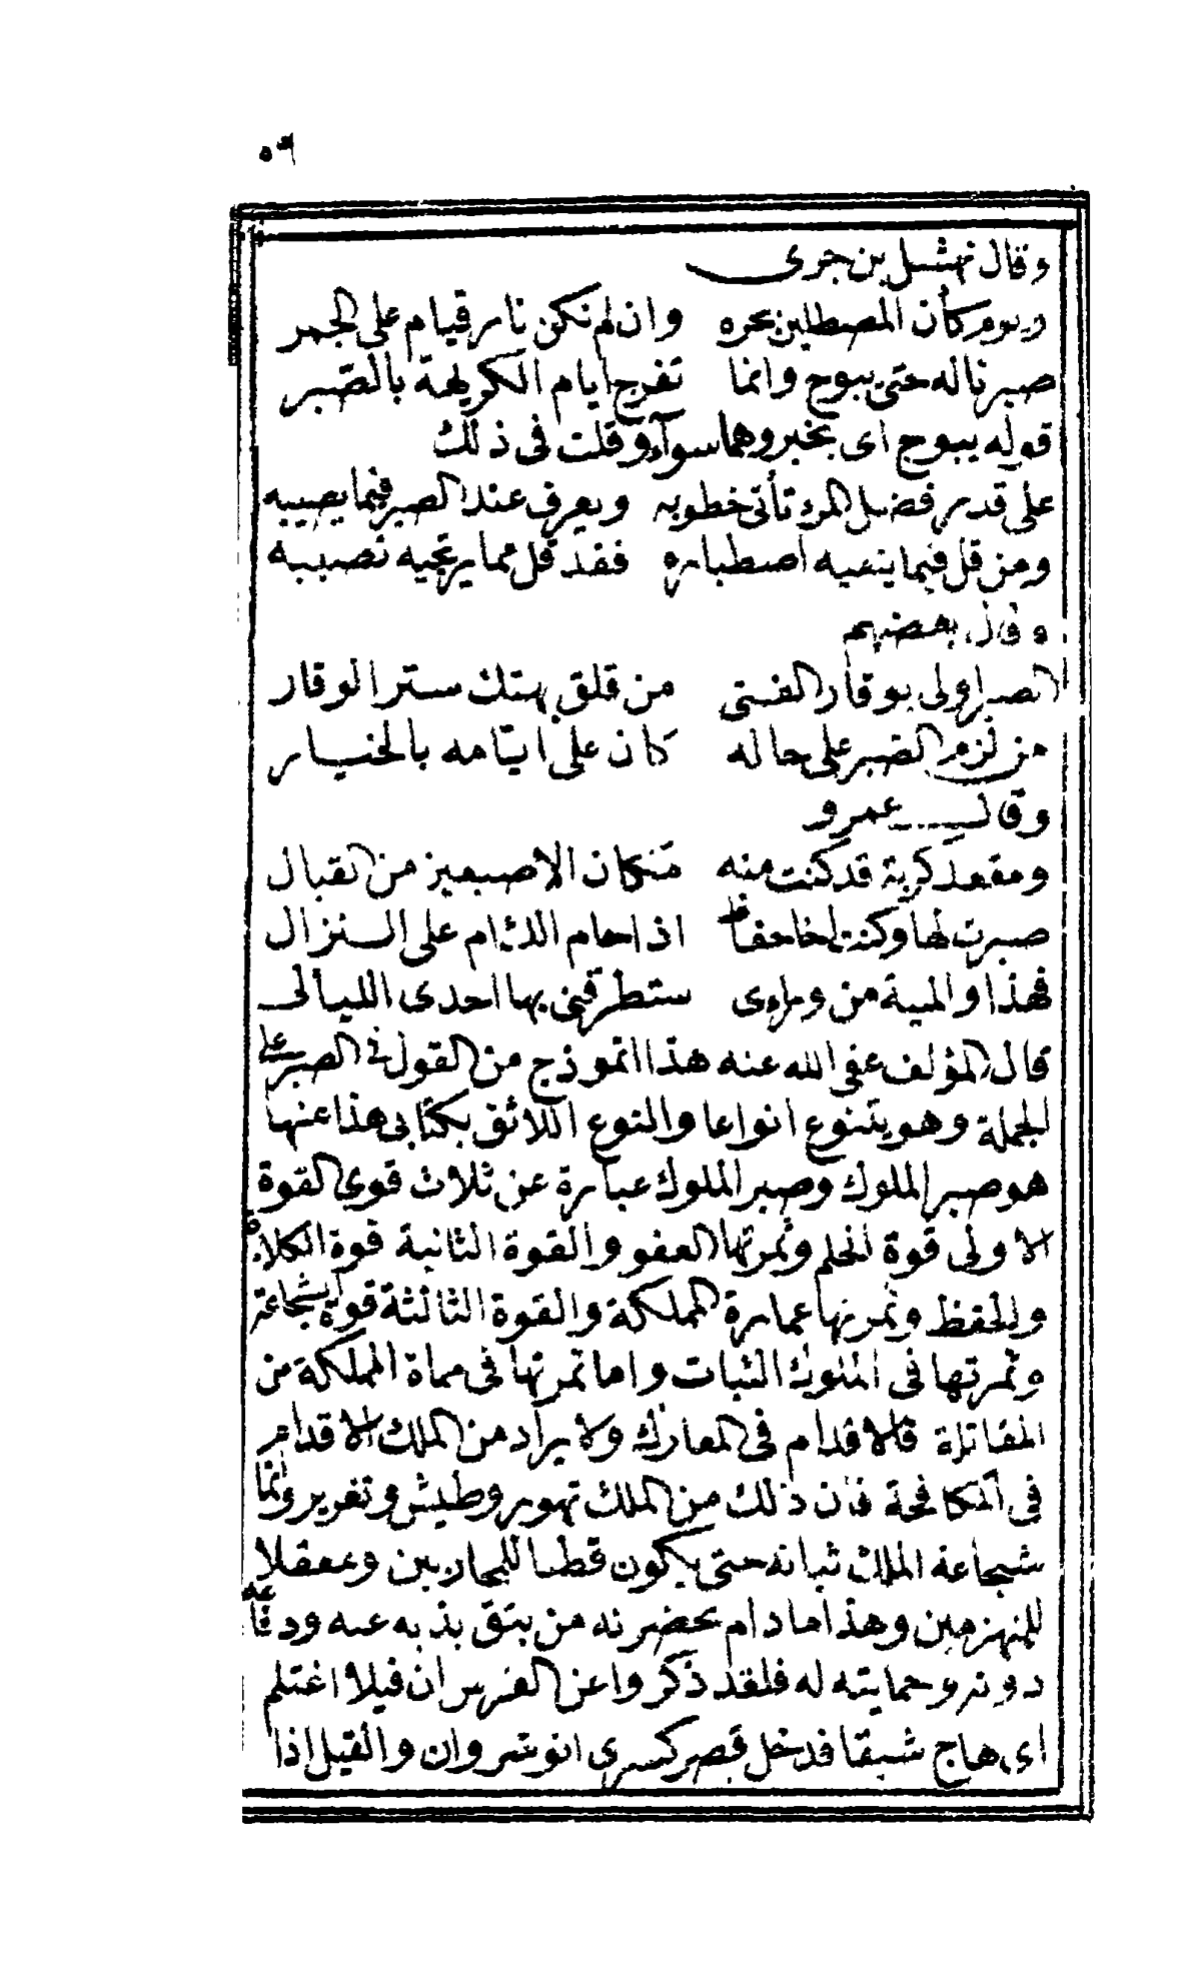 ٥٦
وقال نهشل بن حرى
ويوم كأن المصطلين بحره وان لم تكن نار قيام على الجمر
صبرنا له حتى يبوح وانما تفرج ايام الكريهة بالصبر
قوله يبوح اى يخبر وهما سوآء وقلت فى ذلك
على قدر فضل المرء تأتى خطوبه ويعرف عند الصبر فيما يصيبه
ومن قل فيما يتقيه اصطباره فقد قل مما يرتجيه نصيبه
وقال بعضهم
الصبر اولى بوقار الفتى من قلق يهتك ستر الوقار
من لزم الصبر على حاله كان على ايامه بالخيار
وقال عمرو
ومقعد كربة قد كنت منه مكان الاصبعين من القبال
صبرت لها وكنت اخا حفاظ اذا حام اللئام على النزال
فهذا والمنية من وراءى ستطرقنى بها احدى الليالى
قال المؤلف عفى الله عنه هذا انموذج من القول فى الصبر على
الجملة وهو يتنوع انواعا والنوع اللائق بكتابى هذا عنها
هو صبر الملوك وصبر الملوك عبارة عن ثلاث قوى القوة
الاولى قوة الحلم وثمرتها العفو والقوة الثانية قوة الكلاءة
والحفظ وثمرتها عمارة المملكة والقوة الثالثة قوة الشجاعة
وثمرتها فى الملوك الثبات واما ثمرتها فى حماة المملكة من
المقاتلة فالاقدام فى المعارك ولا يراد من الملك الاقدام
فى المكافحة فان ذلك من الملك تهور وطيش وتغرير وانما
شجاعة الملك ثباته حتى يكون قطبا للمحاربين ومعقلا
للمنهزمين وهذا ما دام بحضرته من يثق بذبه عنه ودفاعه
دونه وحمايته له فلقد ذكروا عن الفرس ان فيلا اغتلم
اى هاج شبقا فدخل قصر كسرى انوشروان والفيل اذا